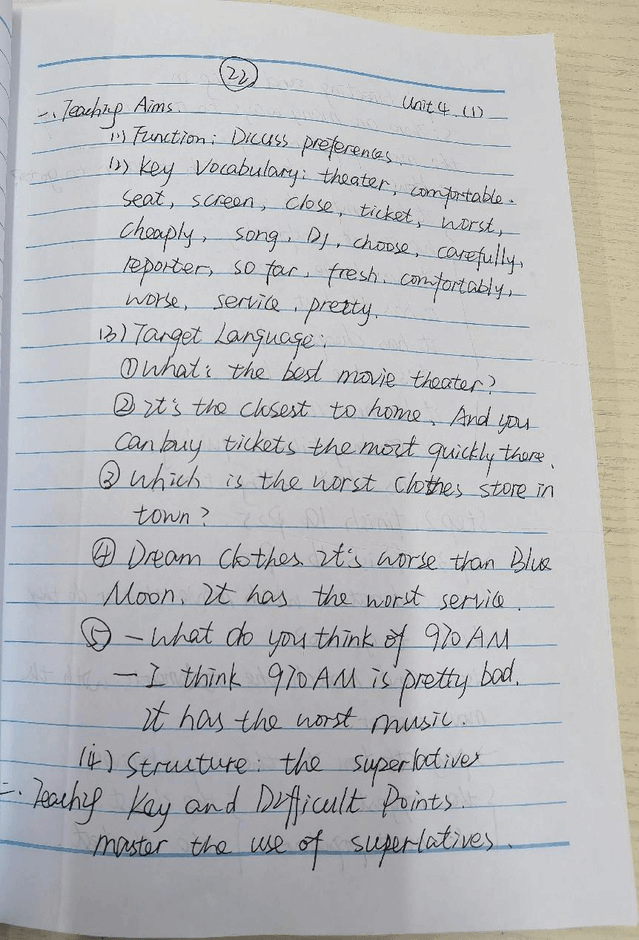 22
Unit 4 (1)
一、Teaching Aims
(1) Function: Dicuss preferences
(2) Key Vocabulary: theater, comfortable.
seat, screen, close, ticket, worst,
cheaply, song, DJ, choose, carefully,
reporter, so far, fresh, comfortably,
worse, service, pretty.
(3) Target Language:
① What's the best movie theater?
② It's the closest to home. And you
can buy tickets the most quickly there.
③ Which is the worst clothes store in
town?
④ Dream clothes. It's worse than Blue
Moon. It has the worst service.
⑤ — What do you think of 970 AM
— I think 970 AM is pretty bad.
It has the worst music.
(4) Structure: the superlatives
二、Teaching Key and Difficult Points.
master the use of superlatives.